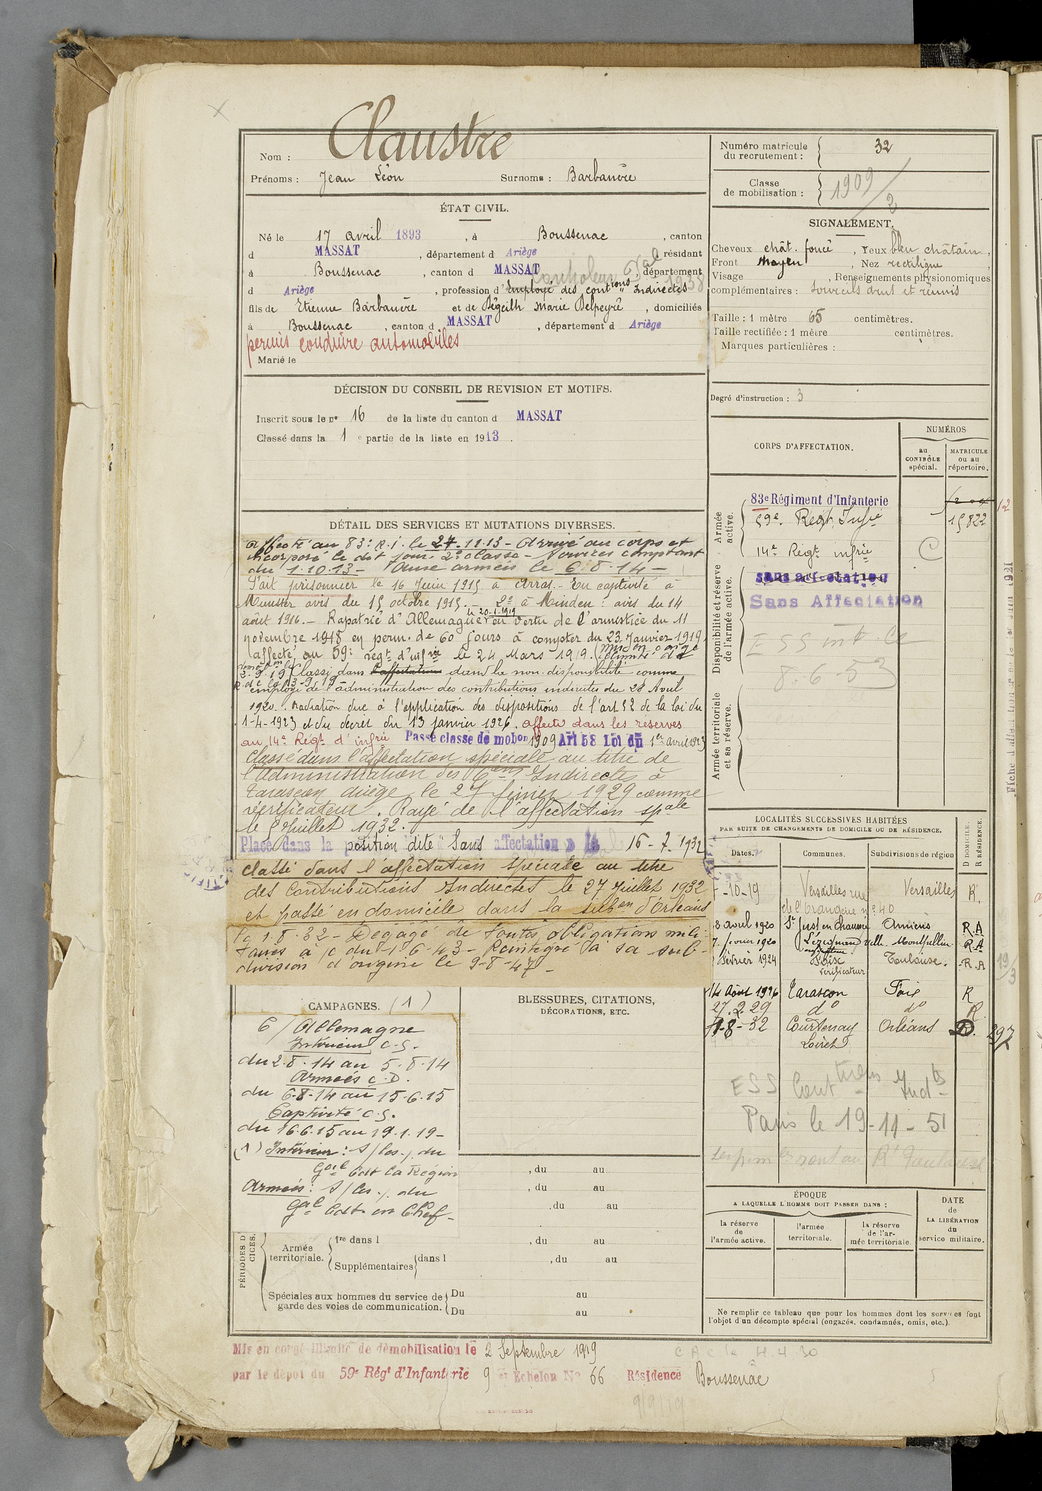 Claustre
Nom :
Prénoms : Jean Léon Surnoms : Barbanère
Numéro matricule
du recrutement : 32
Classe
de mobilisation : 1909/2
ÉTAT CIVIL.
Né le 17 avril 1893, à Boussenac, canton
d MASSAT, département d Ariège résidant
à Boussenac, canton d MASSAT département
d Ariège, profession d'Employé des contions Indirectes
fils de Etienne Barbanère et de Bégeith Marie Delpeyré, domiciliés
à Boussenac, canton d MASSAT, département d Ariège
permis conduire automobiles
Marié le
SIGNALEMENT.
Cheveux chât. foncé, Yeux bleu châtain,
Front moyen, Nez rectiligne
Visage , Renseignements physionomiques
complémentaires : sourcils droit et réunis
Taille : 1 mètre 65 centimètres.
Taille rectifiée : 1 mètre centimètres.
Marques particulières :
Degré d'instruction : 3
DÉCISION DU CONSEIL DE REVISION ET MOTIFS.
Inscrit sous le n° 16 de la liste du canton d MASSAT
Classé dans la 1e partie de la liste en 1913.
DÉTAIL DES SERVICES ET MUTATIONS DIVERSES.
Affecté au 83e R.I. le 27.11.13 - Arrivé au corps et
incorporé le dit jour. 2e classe - Services comptant
du 1.10.13 - Aux armées le 6.8.14 -
Fait prisonnier le 16 Juin 1915 à Arras. En captivité à
Munster avis du 15 octobre 1915. - do à Minden : avis du 14
août 1916. - Rapatrié d'Allemagne le 20.1.1919 en vertu de l'armistice du 11
novembre 1918 en perm. de 60 jours à compter du 23 Janvier 1919
affecté au 59e régt d'infrie le 24 Mars 1919.
Classé dans l'affectation dans la non disponibilité comme
employé de l'administration des contributions indirectes du 28 Avril
1920. Radiation due à l'application des dispositions de l'art 52 de la loi du
1-4-1923 et du décret du 13 janvier 1926. Affecté dans les réserves
au 14e Régt d'infrie Passé classe de mobon 1909 Art 58 Loi du 1er avril 1923
Classé dans l'affectation spéciale au titre de
l'Administration des Cions Indirectes à
Tarascon Ariège le 27 février 1929 comme
vérificateur. Rayé de l'affectation spale
le 8 Juillet 1932.
Placé dans la position dite "Sans affectation" le 16-7-1932
classé dans l'affectation spéciale au titre
des Contributions Indirectes le 27 Juillet 1932
et passé en domicile dans la subon d'Orléans
le 1.8.32 - Dégagé de toutes obligations mili-
taires à/c du 1.6.43 - Réintégré à sa sub-
division d'origine le 9-8-47 -
CORPS D'AFFECTATION.
NUMÉROS
au
CONTRÔLE
spécial.
MATRICULE
ou au
répertoire.
Armée
active.
83e Régiment d'Infanterie
59e Régt Infie 15822
Disponibilité et réserve
de l'armée active.
14e Régt infrie
sans affectation
Sans Affectation
8-6-53
Armée territoriale
et sa réserve.
LOCALITÉS SUCCESSIVES HABITÉES
PAR SUITE DE CHANGEMENTS DE DOMICILE OU DE RÉSIDENCE.
Dates. Communes. Subdivisions de région
D DOMICILE.
R RÉSIDENCE.
-10-19 Versailles rue Versailles R.
de l'Orangerie n° 40
8 avril 1920 St Just en Chaussée Amiens R.A
7. février 1920 Lézignan Montpellier R.A
Février 1924 Toulouse. R.A
vérificateur
14 Août 1926 Tarascon Foix R
27.2.29 do do R.
1-8-32 Courtenay Orléans D. 297
Loiret
ESS Contions Indtes
Paris le 19-11-51
CAMPAGNES. (1)
C/ Allemagne
Intérieur C.S.
du 2-8-14 au 5-8-14
Armées C.D.
du 6-8-14 au 15-6-15
Captivité C.S.
du 16.6.15 au 19.1.19 -
(1) Intérieur : S/les. du
Gal Cdt la Région
Armées : S/les. du
Gal Cdt en Chef -
BLESSURES, CITATIONS,
DÉCORATIONS, ETC.
, du au
, du au
, du au
PÉRIODES D'
CICES.
Armée
territoriale.
1re dans l , du au
Supplémentaires dans l , du au
Spéciales aux hommes du service de
garde des voies de communication.
Du au
Du au
ÉPOQUE
A LAQUELLE L'HOMME DOIT PASSER DANS :
la réserve
de
l'armée active.
l'armée
territoriale.
la réserve
de l'ar-
mée territoriale
DATE
de
LA LIBÉRATION
du
service militaire.
Ne remplir ce tableau que pour les hommes dont les services font
l'objet d'un décompte spécial (engagés, condamnés, omis, etc.).
Mis en congé illimité de démobilisation le 2 Septembre 1919
par le dépôt du 59e Régt d'Infanterie 9e Échelon No 66 Résidence Boussenac